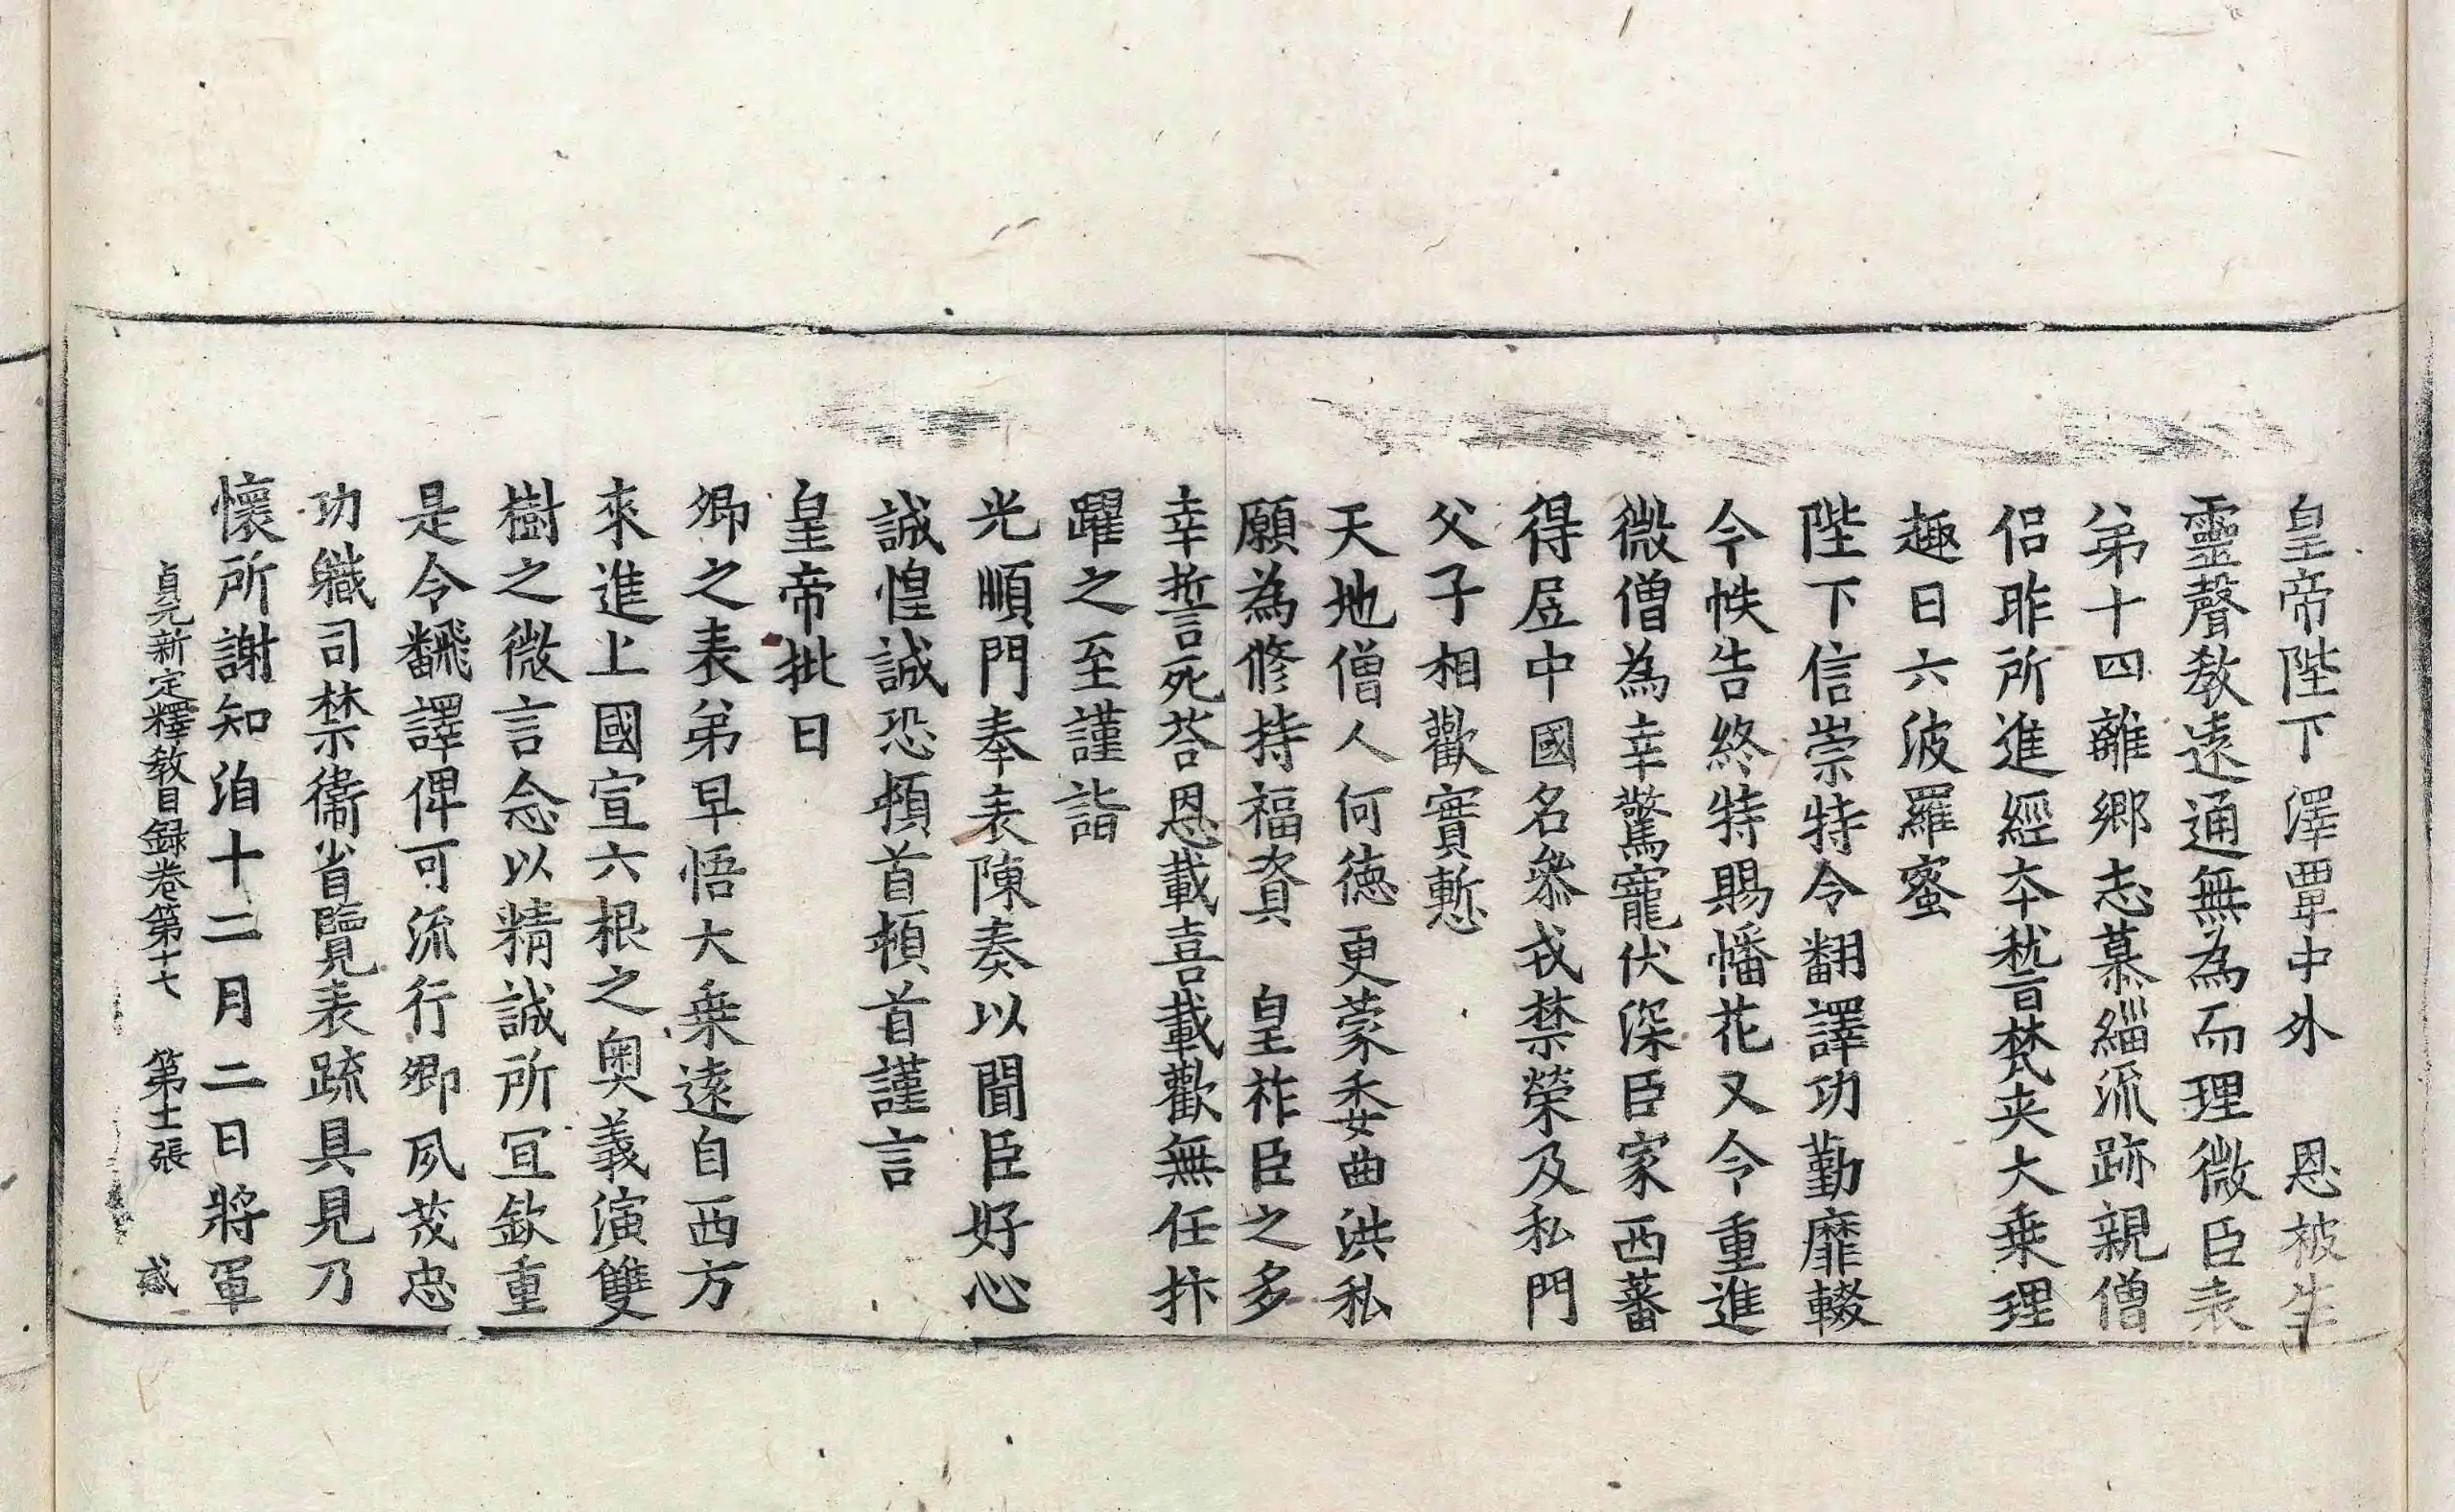 皇帝陛下澤覃中外　恩被生
靈聲教遠通無為而理微臣表
弟十四離鄉志慕緇流跡親僧
侶昨所進經夲梵夹大乗理
趣日六波羅蜜
陛下信崇特令翻譯功勤靡輟
今帙告終特賜幡花又令重進
微僧為幸驚寵伏深臣家西蕃
得居中國名叅戎禁榮及私門
父子相歡實慙
天地僧人何德更蒙委曲洪私
願為修持福資　皇祚臣之多
幸誓死荅恩載喜載歡無任抃
躍之至謹詣
光順門奉表陳奏以聞臣好心
誠惶誠恐頓首頓首謹言
皇帝批曰
卿之表弟早悟大乗遠自西方
來進上國宣六根之奥義演雙
樹之微言念以精誠所冝欽重
是令飜譯俾可流行卿夙茂忠
功軄司禁衛省覽表疏具見乃
懷所謝知洎十二月二日將軍
貞元新定釋教目録卷第十七　第士張　貳